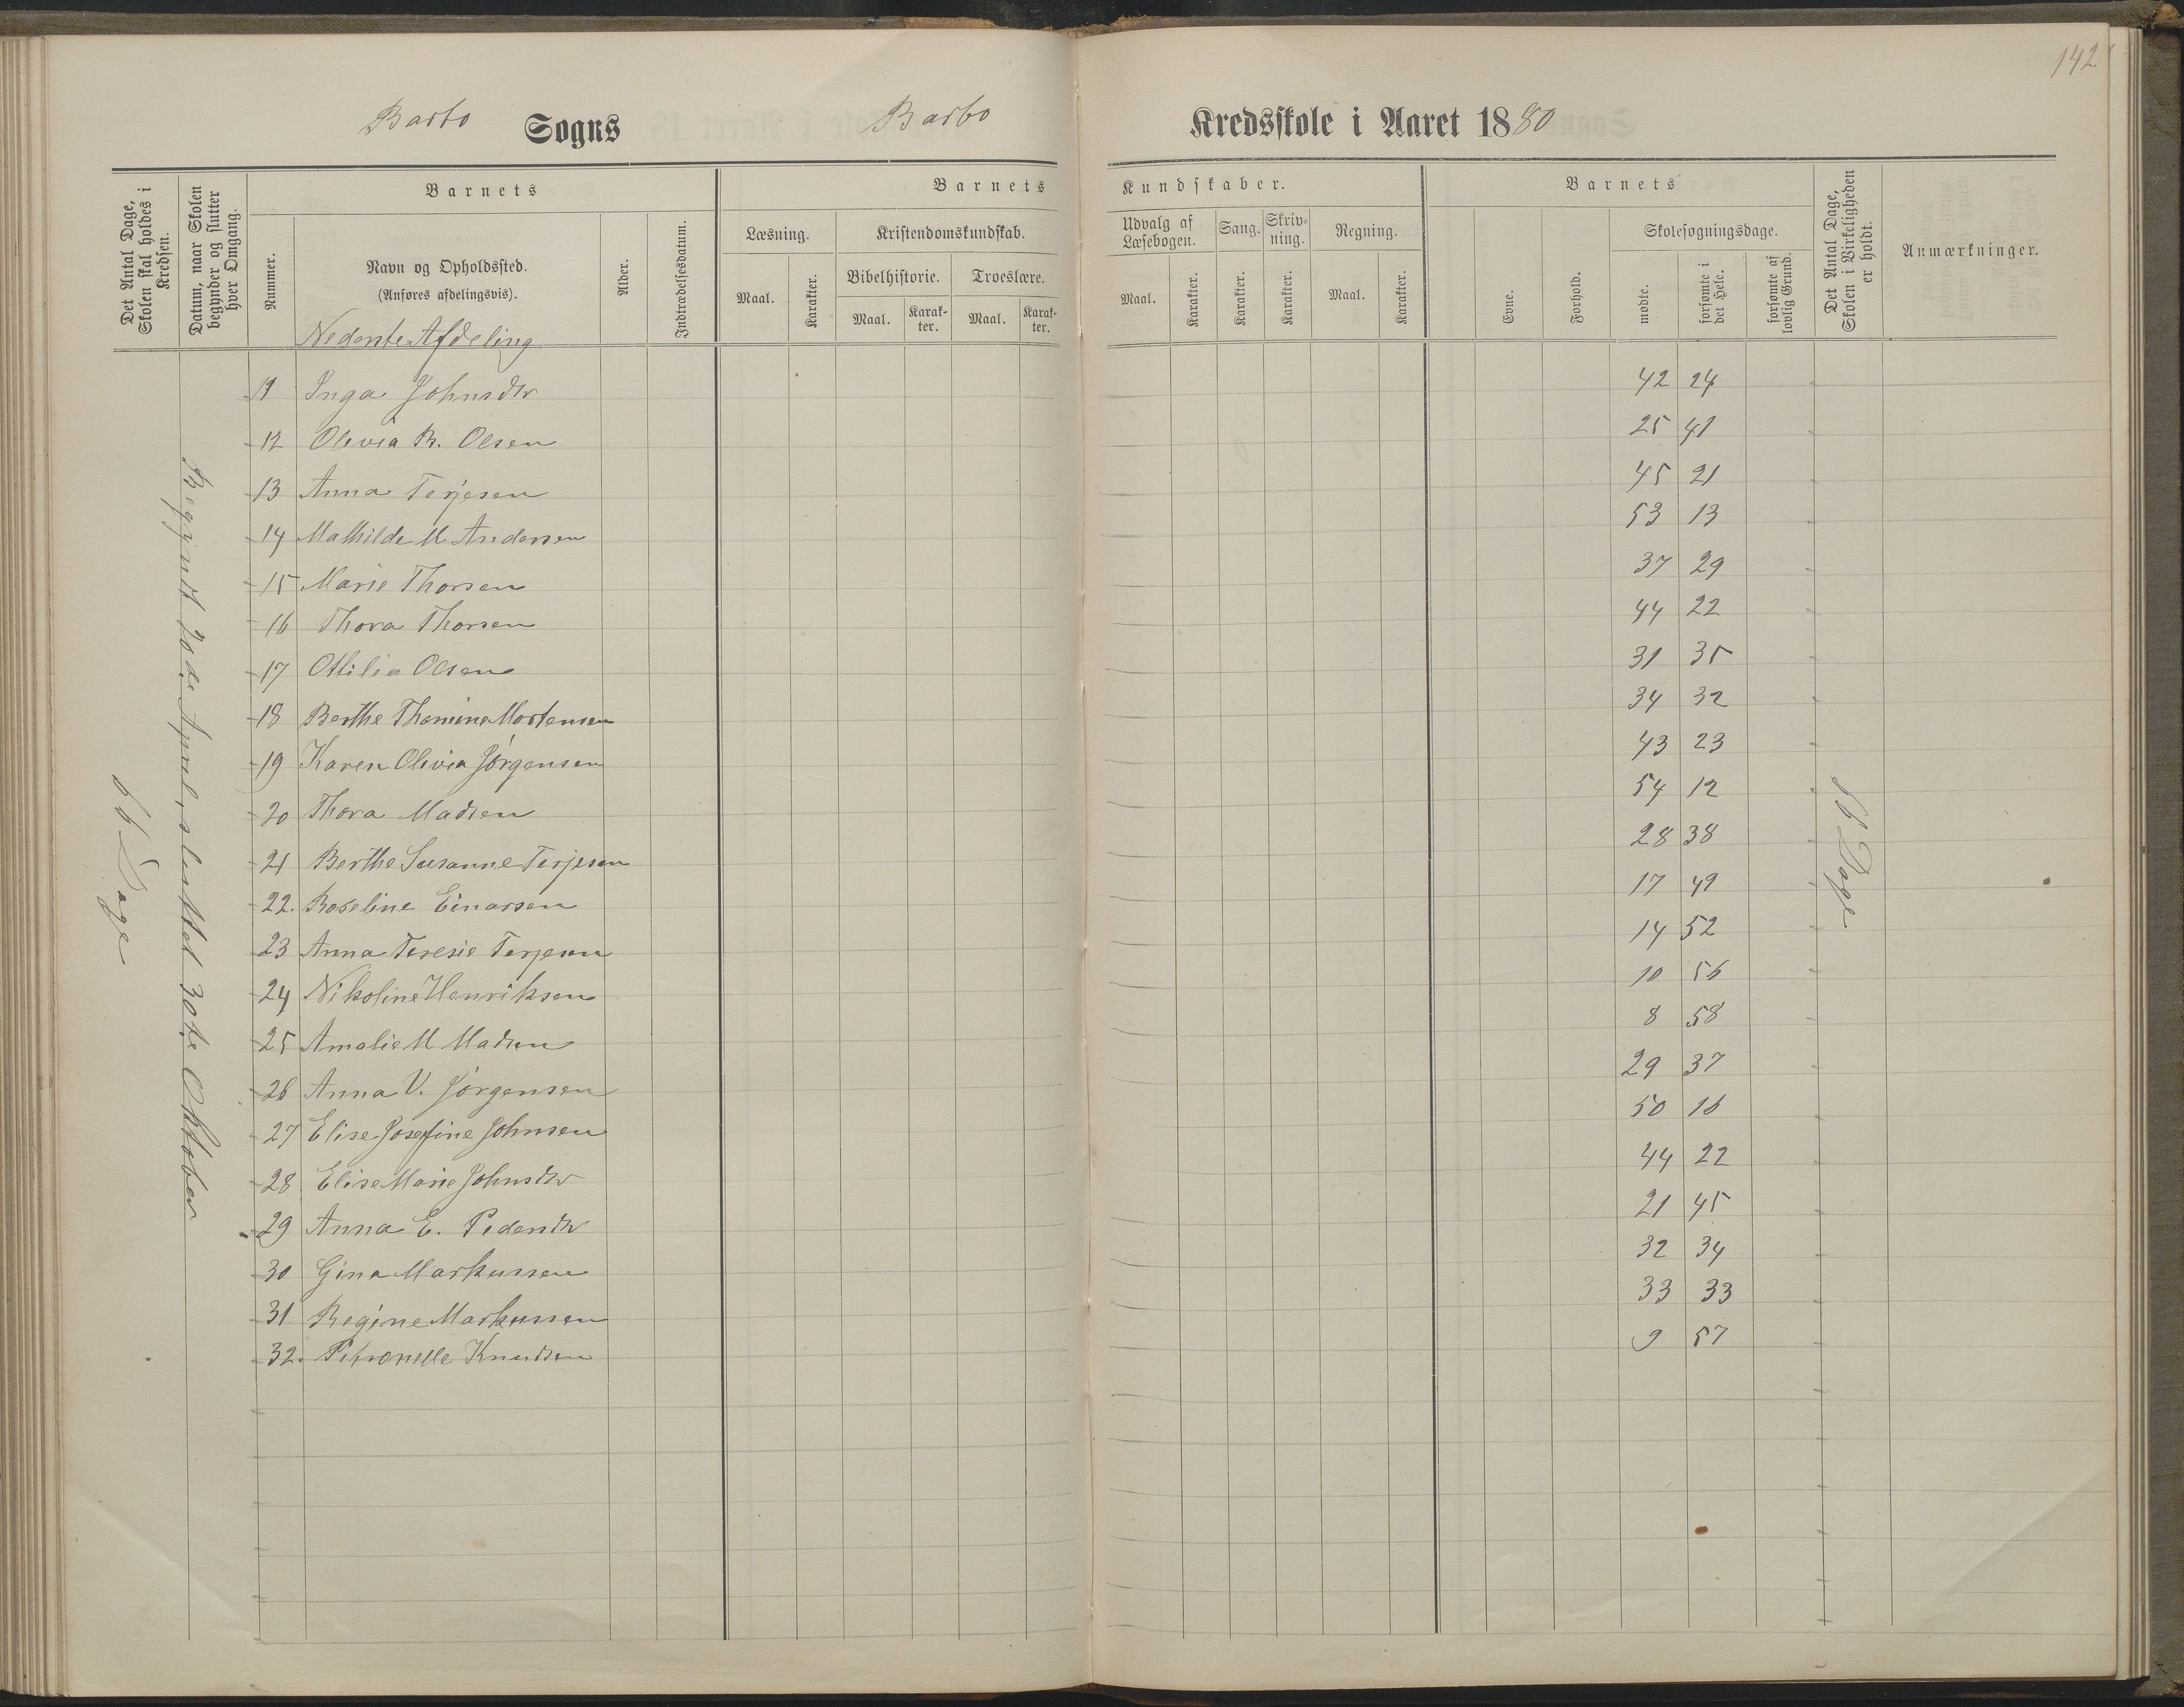 142
Barbo Sogns Barbo Kredsskole i Aaret 1880
Det Antal Dage, Skolen skal holdes i Kredsen.
Datum, naar Skolen begynder og slutter hver Omgang.
Barnets
Nummer.
Navn og Opholdssted.
(Anføres afdelingsvis).
Alder.
Indtrædelsesdatum.
Barnets Kundskaber.
Læsning.
Maal.
Karakter.
Kristendomskundskab.
Bibelhistorie.
Maal.
Karakter.
Troeslære.
Maal.
Karakter.
Udvalg af Læsebogen.
Maal.
Karakter.
Sang.
Karakter.
Skrivning.
Karakter.
Regning.
Maal.
Karakter.
Barnets
Evne.
Forhold.
Skolesøgningsdage.
mødte.
forsømte i det Hele.
forsømte af lovlig Grund.
Det Antal Dage, Skolen i Virkeligheden er holdt.
Anmærkninger.
Nederste Afdeling
66 Dage
Begyndt 20de April, sluttet 30te Oktober
11 Inga Johnsdtr 42 24
12 Olevia B. Olsen 25 41
13 Anna Terjesen 45 21
14 Mathilde M Andersen 53 13
15 Marie Thorsen 37 29
16 Thora Thorsen 44 22
17 Ottilia Olsen 31 35
18 Berthe Thomine Mortensen 34 32
19 Karen Olivia Jörgensen 43 23
20 Thora Madsen 54 12
21 Berthe Susanne Terjesen 28 38
22. Roseline Einarsen 17 49
23 Anna Teresie Terjesen 14 52
24 Nikoline Henriksen 10 56
25 Amalie M Madsen 8 58
26 Anna V. Jörgensen 29 37
27 Elise Josefine Johnsen 50 16
28 Elise Marie Johnsdtr 44 22
29 Anna E. Pedersdtr 21 45
30 Gina Markussen 32 34
31 Regine Markussen 33 33
32. Petronelle Knudsen 9 57
Dage